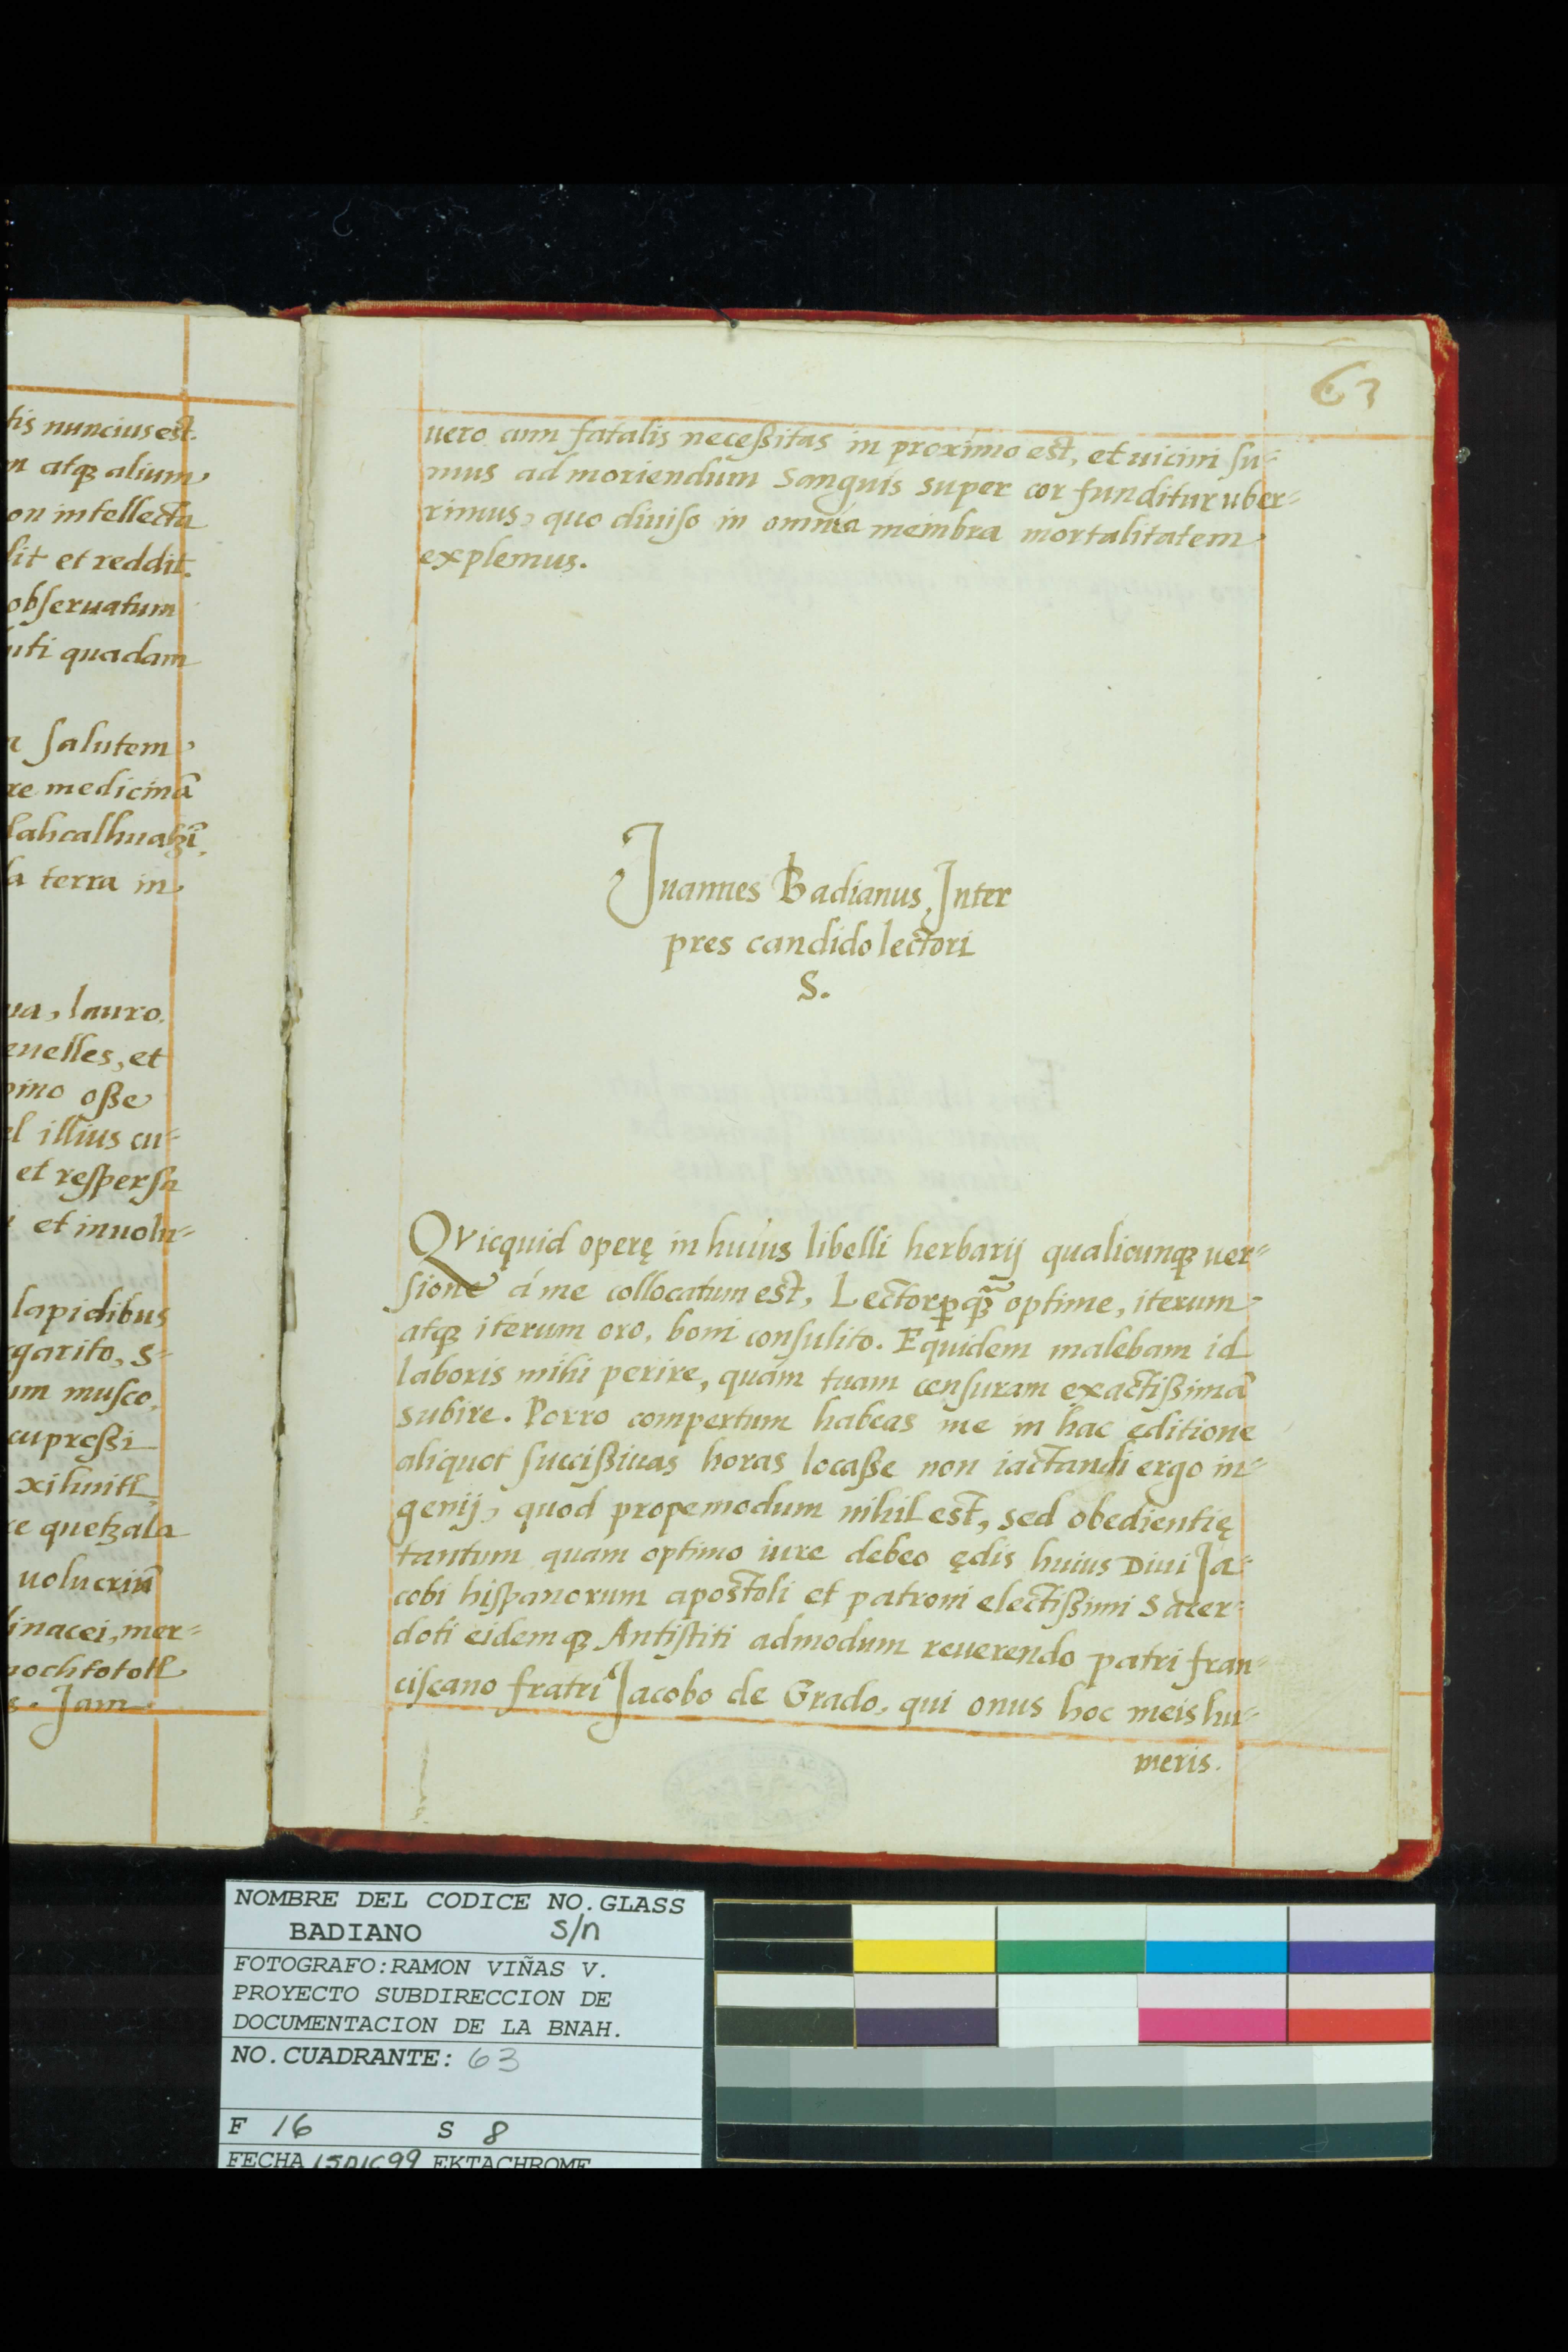 tis nuncius est.
m atqꝫ alium,
on intellectu
lit et reddit.
obſeruatum
uti quadam
ſalutem,
re medicinā
lahcalhuatzī,
a terra in
ua, lauro.
enelles, et
oſſe
el illius cu⸗
et reſperſa
et inuolu⸗
lapidibus
rgarito, s⸗
um muſco,
cupreſſi
xihuitl,
ce quetzala
uolucriū
linacei, mer⸗
nochtototl
s. Jam
63
uero cum fatalis neceßitas in proximo est, et uicini ſu⸗
mus ad moriendum Sanguis super cor funditur uber⸗
rimus, quo diuiſo in omnia membra mortalitatem
explemus.
Juannes Badianus, Inter
pres candido lectori
S.
Qvicquid operę in huius libelli herbarij qualicunqꝫ uer⸗
ſione á me collocatum est, Lector ꝑqꝫ̃ optime, iterum
atqꝫ iterum oro, boni conſulito. Equidem malebam id
laboris mihi perire, quám tuam cenſuram exactißimā
subire. Porro compertum habeas me in hac ęditione
aliquot ſuccißiuas horas locaße non iactandi ergo in⸗
genij, quod propemodum nihil est, sed obedientię
tantum quam optimo iure debeo ędis huius Diui Ja⸗
cobi hiſpanorum apostoli et patroni electißimi Sacer⸗
doti eidemqꝫ Antiſtiti admodum reuerendo patri fran⸗
ciſcano fratri Jacobo de Grado, qui onus hoc meis hu⸗
meris.
NOMBRE DEL CODICE NO.GLASS
BADIANO s/n
FOTOGRAFO:RAMON VIÑAS V.
PROYECTO SUBDIRECCION DE
DOCUMENTACION DE LA BNAH.
NO.CUADRANTE: 63
F 16 S 8
FECHA 15DIC99 EKTACHROME